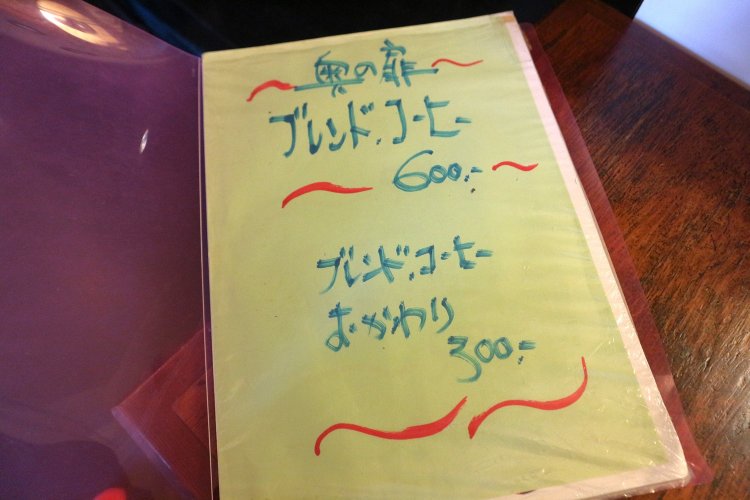 奥の扉
ブレンド.コーヒー
600.-
ブレンド.コーヒー
おかわり
300.-